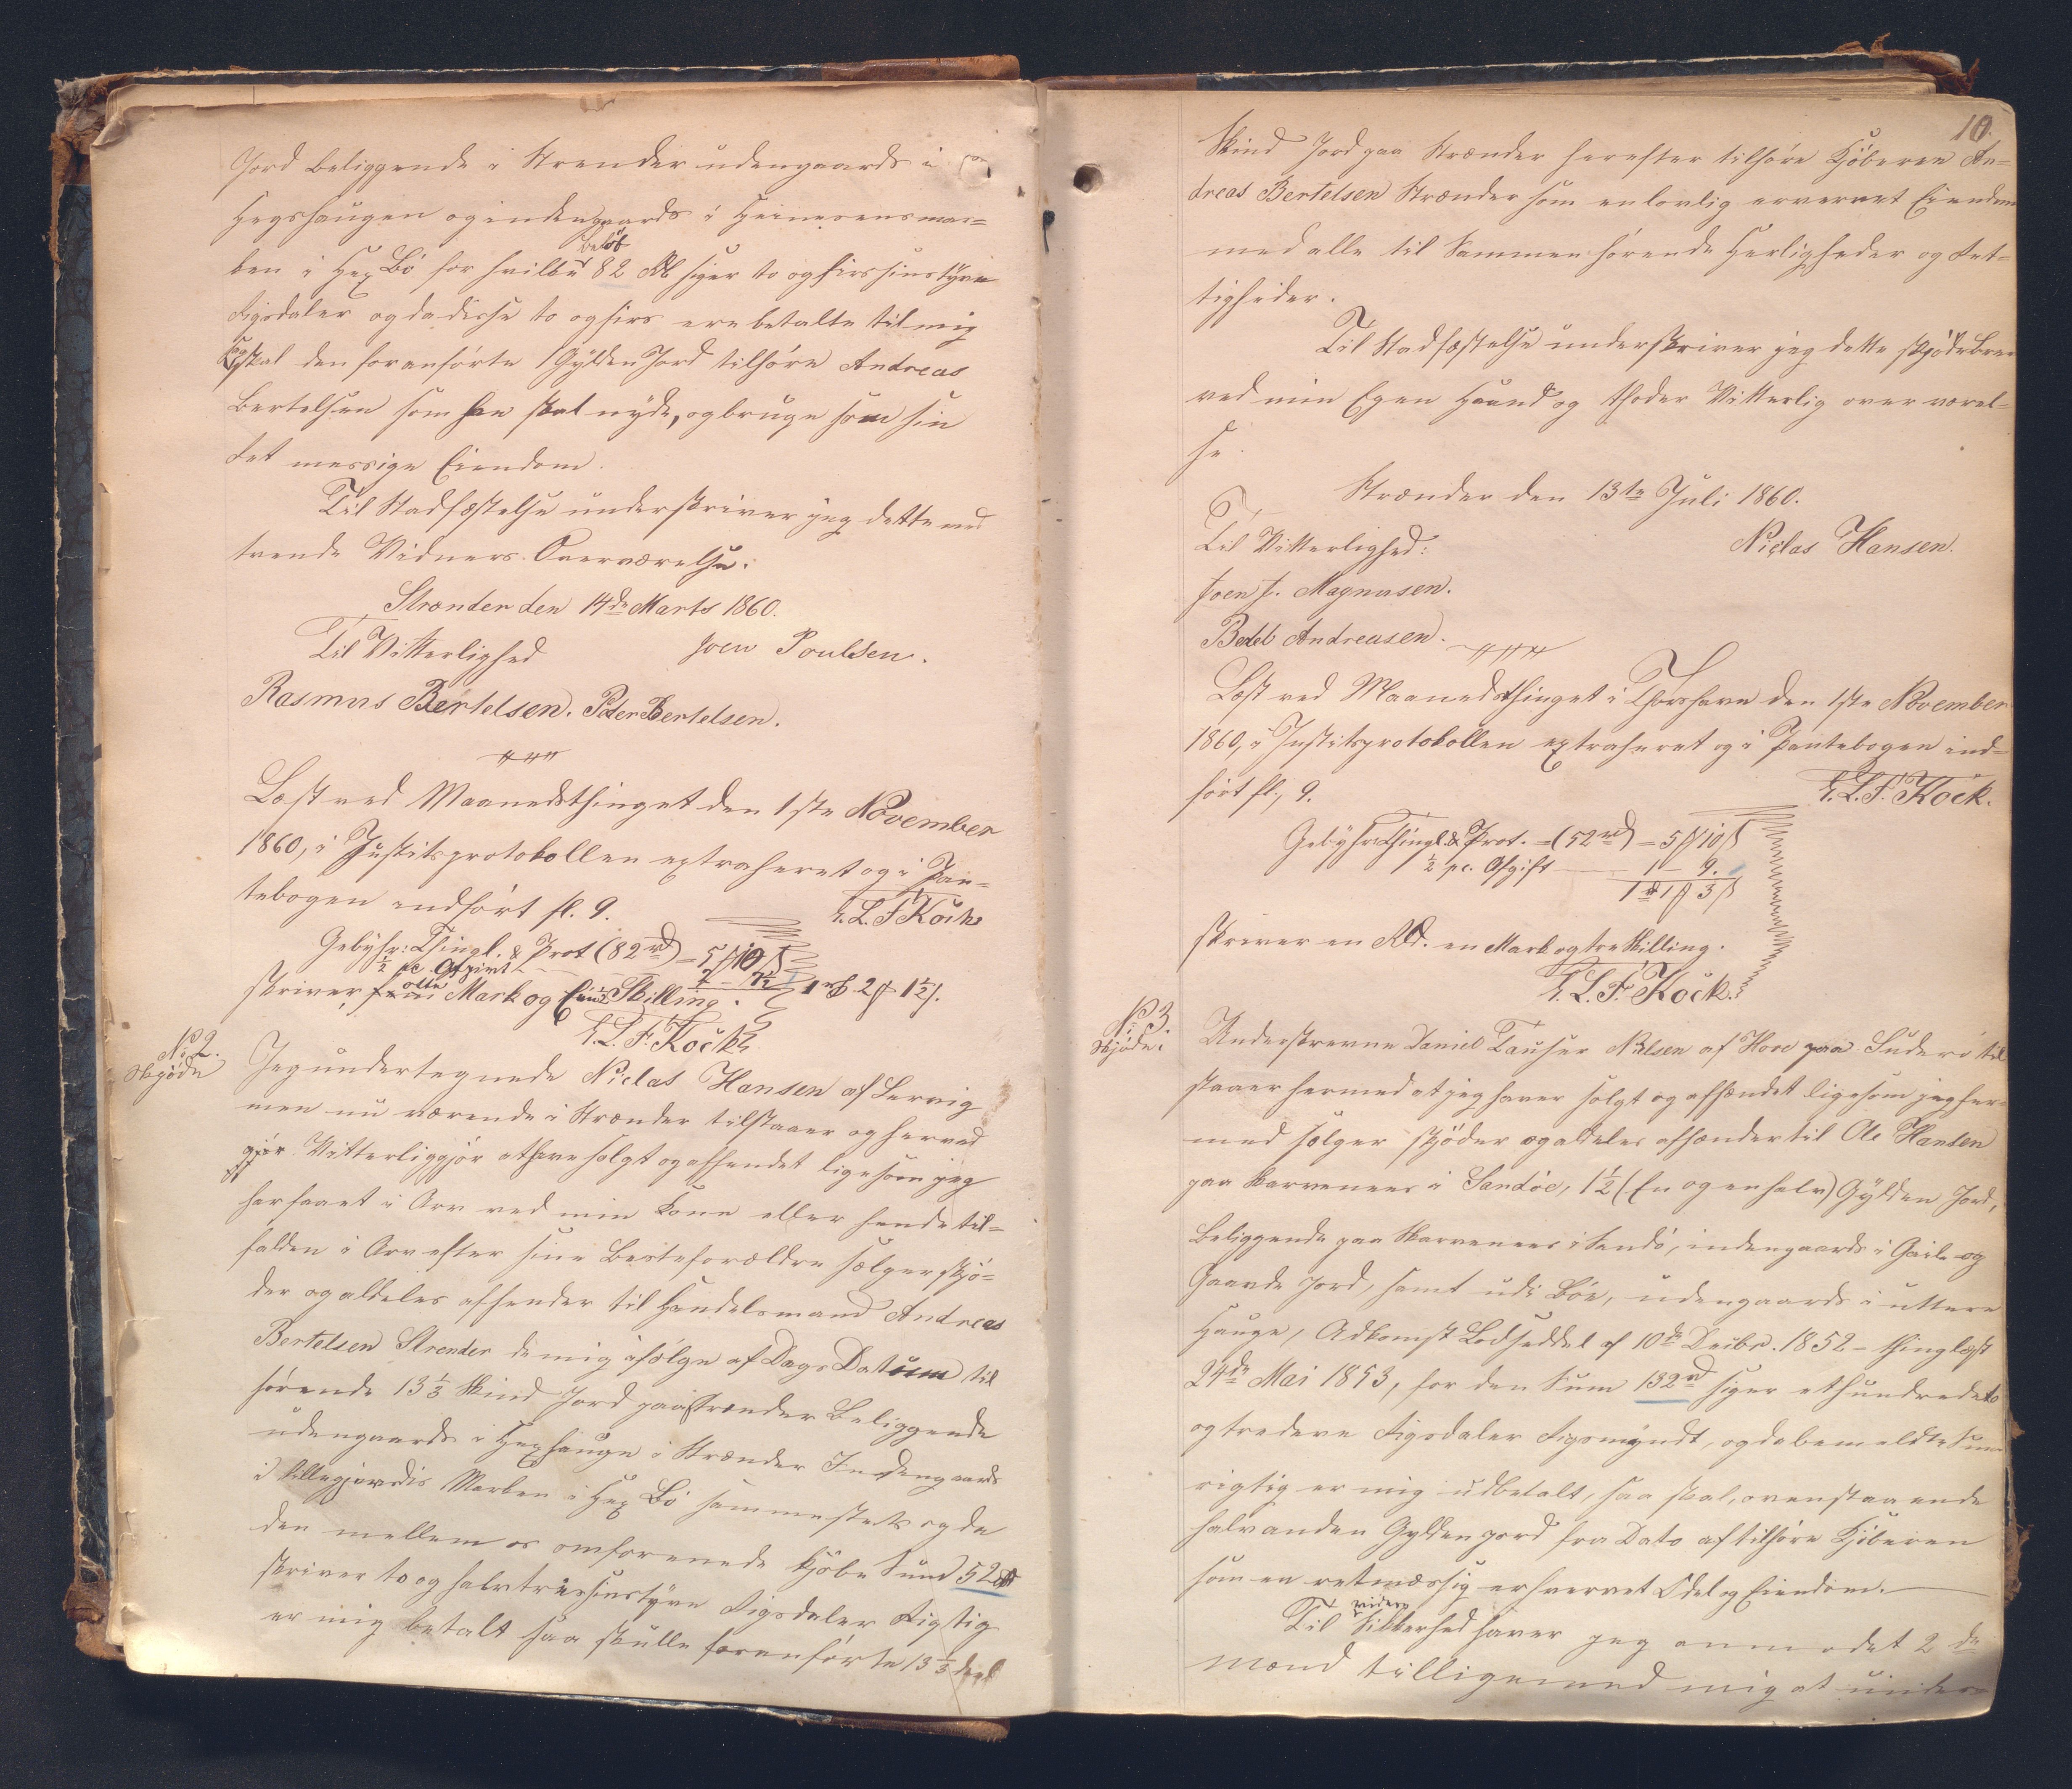 Jord beliggende i Strender udengaards i
Hegshaugen og indengaards i Heinesensmar-
ken i Hex Bö for hvilke beløb 82 Rd siger to og firssinstyve
Rigsdaler og da disse to og firs ere betalte til mig
saa skal den foranførte 1 Gylden Jord tilhøre Andreas
Bertelsen som han skal nyde, og bruge som sin
Ret messige Eiendom.
Til Stadfæstelse underskriver jeg dette med
tvende Vidners Overværelse.
Strænder den 14de Marts 1860.
Til Vitterlighed Joen Poulsen.
Rasmus Bertelsen. Peder Bertelsen.
Læst ved Maanedsthinget den 1ste November
1860, i Justitsprotokollen extraheret og i Pan-
tebogen indført fl. 9. E.L.F. Kock
Gebyhr: Thingl. & Prot (82rd) = 5 10
½ pc. Afgivt
skriver otte Mark og Skilling. 1rd 2 1½
E.L.F. Kock
No 2.
Skjøde
Jeg undertegnede Niclas Hansen af Lervig
men nu værende i Strænder tilstaaer og herved
gjør Vitterliggjør at have solgt og afhendet ligesom jeg
har faaet i Arv ved min Kone eller hende til-
falden i Arv efter sine Besteforældre sælger skjø-
der og aldeles afhender til Handelsmand Andreas
Bertelsen Strender de mig ifølge af Dags Datum til
hørende 13⅓ Skind Jord paa Strænder Beliggende
udengaards i Hexhauge i Strænder Indengaards
i Marken i Hex Bö sammestets og da
den mellem os omforenede Kjøbe Sum 52rd
skriver to og halvtressinstyve Rigsdaler Rigtig
er mig betalt saa skulle foranførte 13⅓
10.
Skind Jord paa Strænder herefter tilhøre Kjøberen An-
dreas Bertelsen Strænder som en lovlig erververet Eiendom
med alle til Sammen hørende Herligheder og Ret-
tigheder.
Til Stadfæstelse underskriver jeg dette skjødebrev
ved min Egen Haand og thoder Vitterlig over værel-
se.
Strænder den 13te Juli 1860.
Til Vitterlighed: Niclas Hansen.
Joen J. Magnusen.
Andreasen.
Læst ved Maanedsthinget i Thorshavn den 1ste November
1860, i Justitsprotokollen extraheret og i Pantebogen ind-
ført fl. 9. E.L.F. Kock.
Gebyhr Thingl. & Prot. = (52rd) = 5 10
½ pc. Afgift 1 - 9.
1rd 1 3
skriver en Rd. en Mark og tre Skilling.
E.L.F. Kock.
No 3.
Skjøde:
Underskrevne Daniel Tauser Nilsen af Hove paa Suderö til
staaer hermed at jeg haver solgt og afhændet ligesom jeg her-
med sælger skjøder og aldeles afhænder til Ole Hansen
paa Skarvenees i Sandöe, 1½ (En og en halv) Gylden Jord,
Beliggende paa Skarvenees i Sandö, indengaards i Geil- og
Gaarde Jord, samt udi Böe, udengaards i uttere
Hauge, Adkomst Lodseddel af 10de Decbr. 1852 - thinglæst
24de Mai 1853, for den Sum 132rd siger ethundrede to
og tredeve Rigsdaler Rigsmyndt, og da bemeldte Sum
rigtig er mig udbetalt, saa skal, ovenstaaende
halvanden Gylden jord fra Dato af tilhøre Kjøberen
som en retmæssig erhvervet Odel og Eiendom.
Til videre Sikkerhed haver jeg anmodet 2de
mænd tilligemed mig at under-